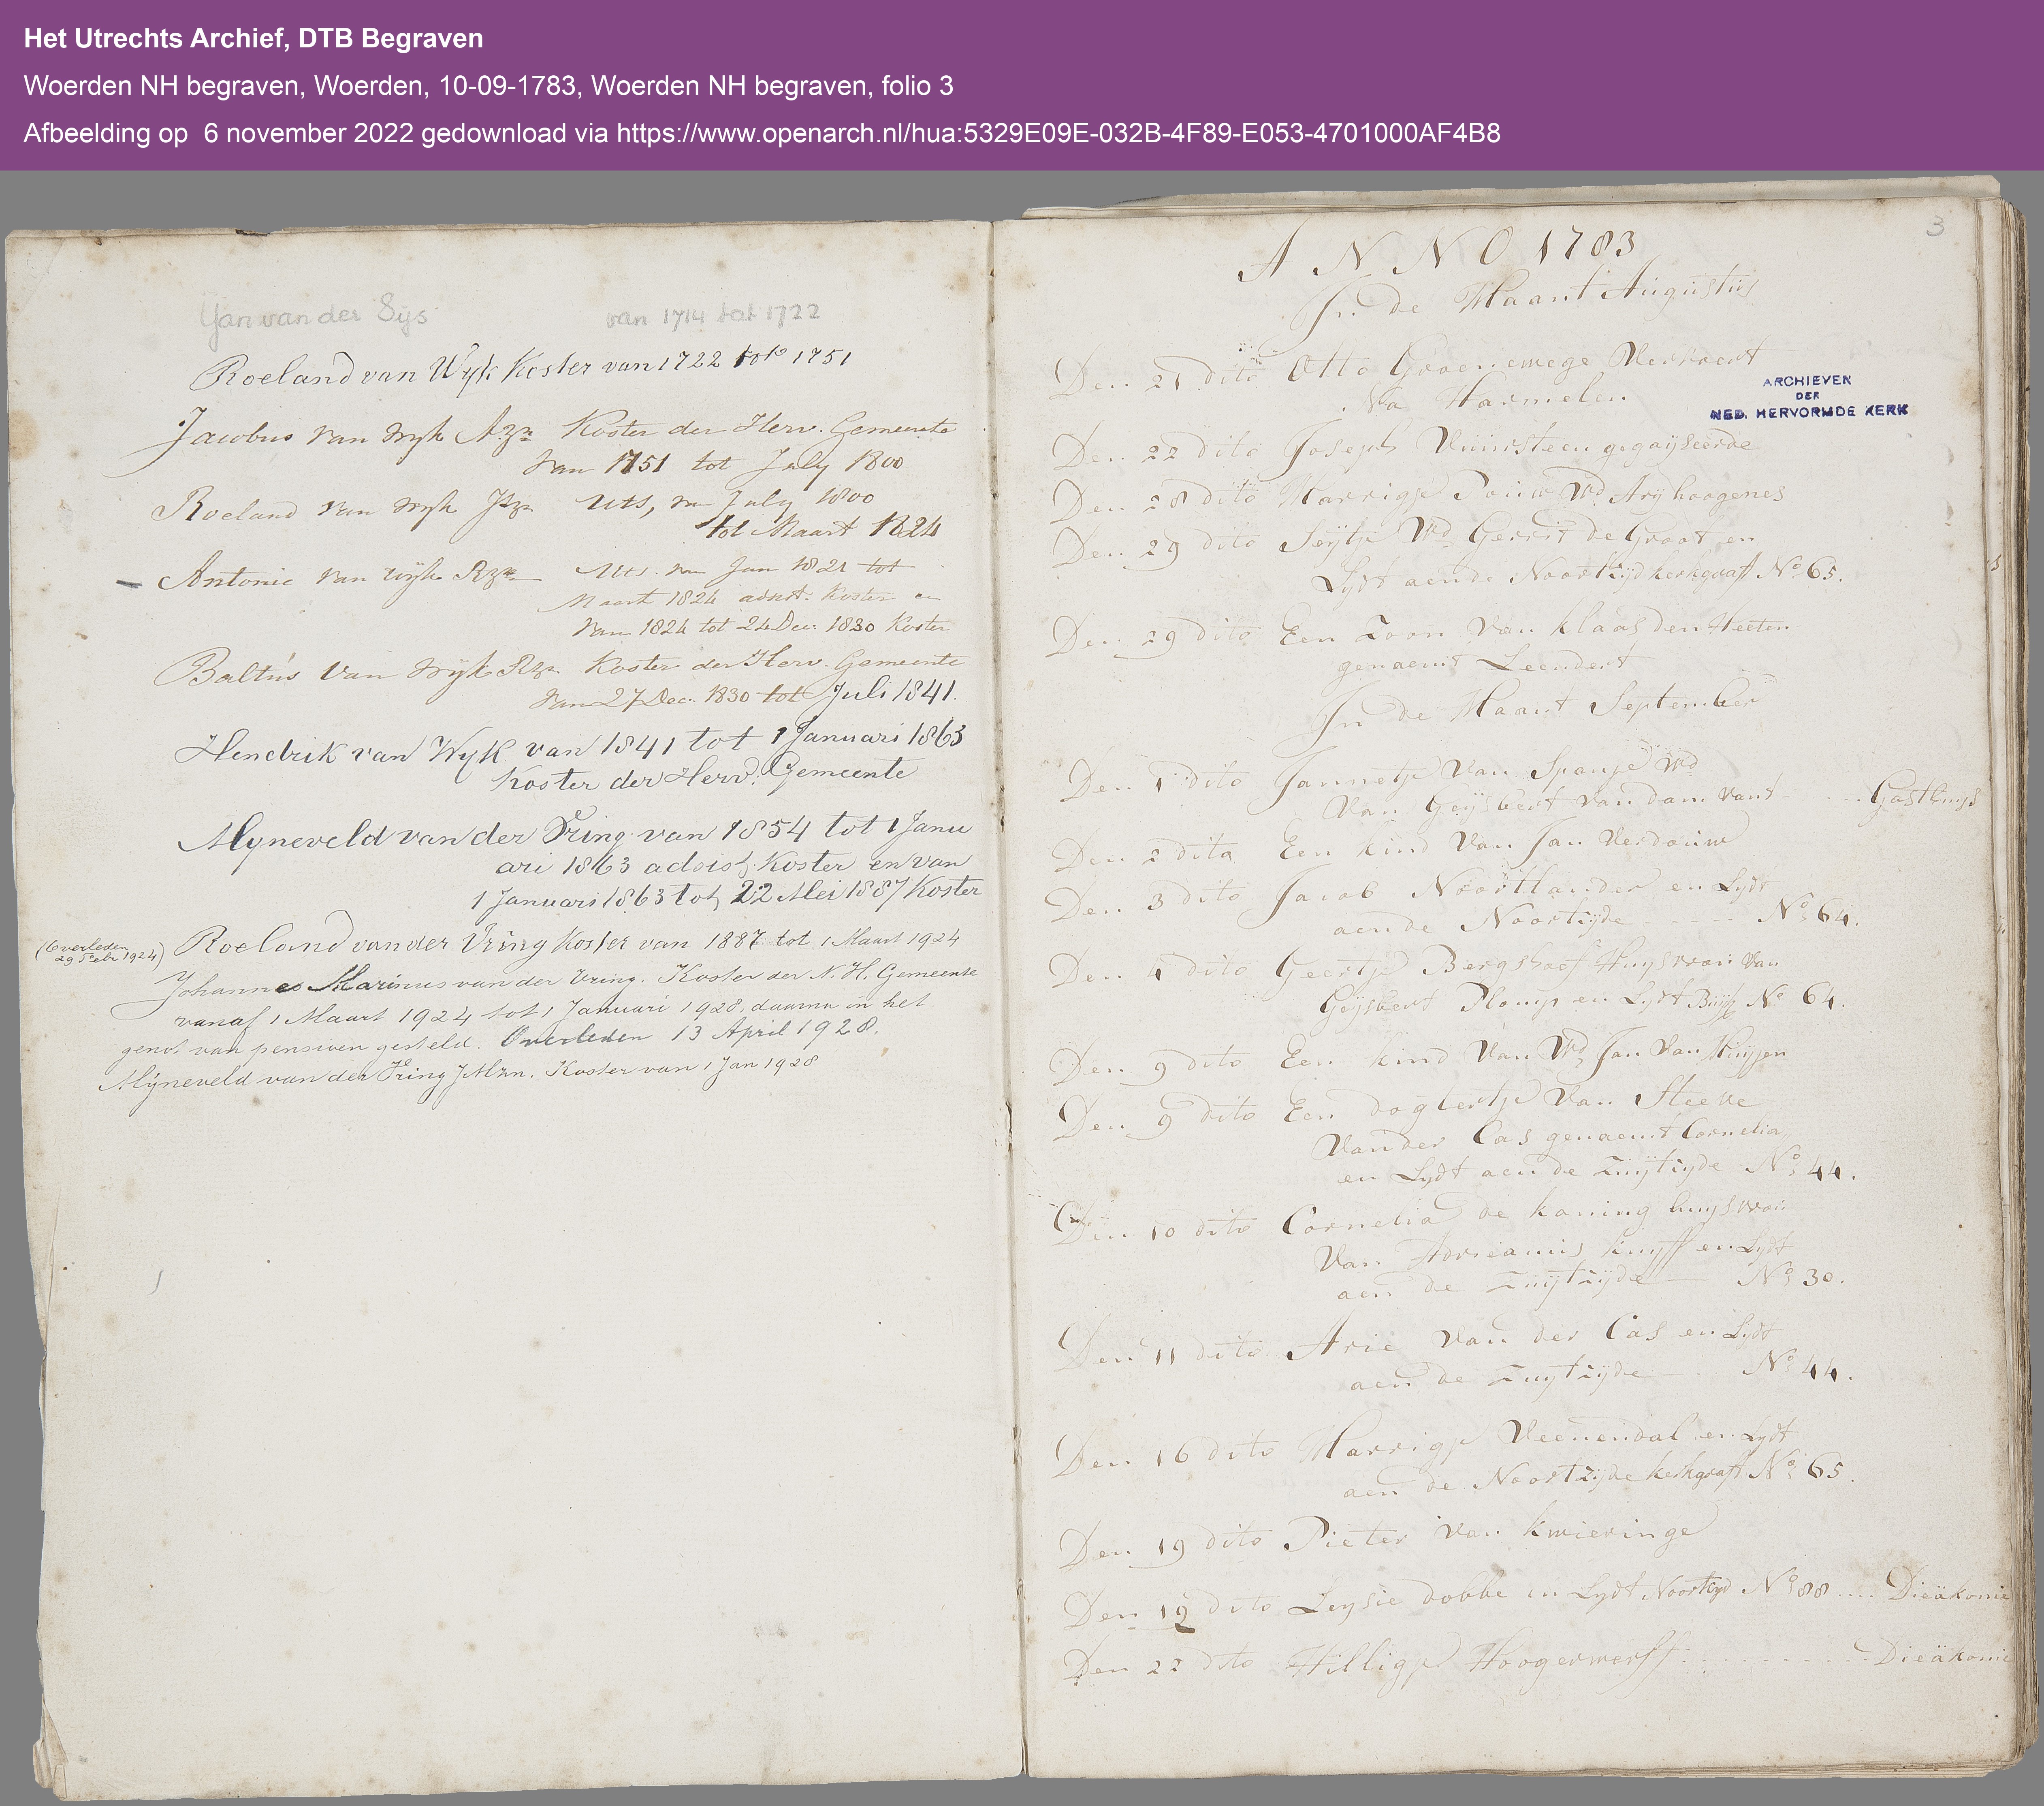 Het Utrechts Archief, DTB Begraven
Woerden NH begraven, Woerden, 10-09-1783, Woerden NH begraven, folio 3
Afbeelding op 6 november 2022 gedownload via https://www.openarch.nl/hua:5329E09E-032B-4F89-E053-4701000AF4B8
Jan van der Sijs van 1714 tot 1722
Roeland van Wyk Koster van 1722 tot 1751
Jacobus van Wyk Azn Koster der Herv. Gemeente
van 1751 tot July 1800
Roeland van Wyk Jzn Uts, van July 1800
tot Maart 1824
Antonie van Wijk Rzn Uts. van Jan 1821 tot
Maart 1824 adsist. Koster en
van 1824 tot 24 Dec. 1830 Koster
Baltus van Wijk Rzn Koster der Herv. Gemeente
van 27 Dec. 1830 tot Juli 1841.
Hendrik van Wyk van 1841 tot 1 Januari 1863
Koster der Herv. Gemeente
Mijneveld van der Vring van 1854 tot 1 Janu
ari 1863 adsist Koster en van
1 Januari 1863 tot 22 Mei 1887 Koster
(Overleden
29 Febr 1924)
Roeland van der Vring Koster van 1887 tot 1 Maart 1924
Johannes Marinus van der Vring. Koster der N. H. Gemeente
vanaf 1 Maart 1924 tot 1 Januari 1928, daarna in het
genot van pensioen gesteld. Overleden 13 April 1928.
Mijneveld van der Vring JMzn. Koster van 1 Jan 1928
3
ANNO 1783
In de Maant Augustus
Den 21 dito Otto Groenewege Vervoert
Na Harmelen
ARCHIEVEN
DER
NED. HERVORMDE KERK
Den 22 dito Joseph Vuursteen gegayseerde
Den 28 dito Marrigje Pouw Wd Arij hoogenes
Den 29 dito Seijtje Wd Gerrit de Groot en
Lydt aende Noortzyd kerkgraft No 65.
Den 29 dito Een Zoon Van klaas den Heeten
genaemt Leendert
In de Maant September
Den 1 dito Jannetje Van Spanje Wd
Van Geijsbert van dam vant Gasthuys
Den 2 dito Een kind Van Jan Verdouw
Den 3 dito Jacob Noortlander en Lydt
aende Noortzyde No 64.
Den 4 dito Geertje Bergshoef Huysvrou Van
Geijsbert Plomp en Lydt No 64.
Den 9 dito Een kind Van Wd Jan Van Huyzen
Den 9 dito Een doghtertje Van Steeve
Vander Cas genaemt Cornelia
en Lydt aen de Zuytzyde No 44.
Den 10 dito Cornelia de koning huysvrou
Van Adrieanus kuyff en Lydt
aen de Zuytzyde No 30.
Den 11 dito Arie Van der Cas en Lydt
aen de Zuytzyde No 44.
Den 16 dito Marrigje Veenendal en Lydt
aen de Noortzyde kerkgraft No 65.
Den 19 dito Pieter Van kwieringe
Den 19 dito Leysie dobbe en Lydt Noortzyd No 88 Dieäkonie
Den 22 dito Hilligje Hoogerwerff Dieäkonie